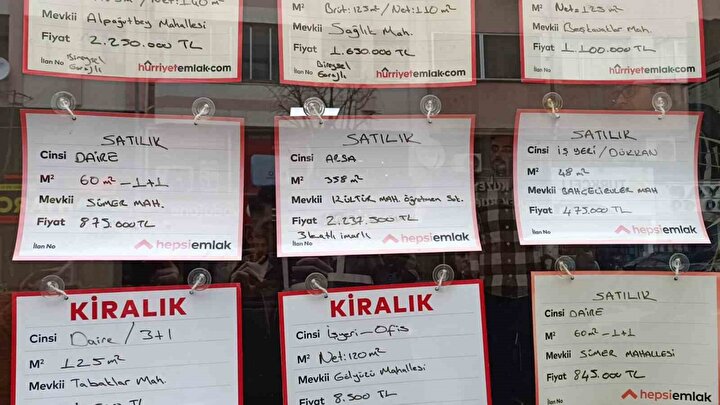 Mevkii Alpagutbey Mahallesi
Fiyat 2.250.000 TL
İlan No Bireysel Garajlı
hürriyetemlak.com
M² Brüt:125m²/Net:110m²
Mevkii Sağlık Mah.
Fiyat 1.630.000 TL
İlan No Bireysel Garajlı
hürriyetemlak.com
M² Net:125m²
Mevkii
Fiyat 1.100.000 TL
İlan No
hürriyetemlak.com
SATILIK
Cinsi DAİRE
M² 60m²-1+1
Mevkii SÜMER MAH.
Fiyat 875.000TL
İlan No
hepsiemlak
SATILIK
Cinsi ARSA
M² 358m²
Mevkii KÜLTÜR MAH. Öğretmen Sit.
Fiyat 2.237.500 TL
3katlı imarlı
İlan No
hepsiemlak
SATILIK
Cinsi İŞ YERİ/DÜKKAN
M² 48m²
Mevkii BAHÇELİEVLER MAH
Fiyat 475.000TL
İlan No
hepsiemlak
KİRALIK
Cinsi Daire/3+1
M² 125m²
Mevkii Tabaklar Mah.
KİRALIK
Cinsi İşyeri-Ofis
M² Net:120m²
Mevkii Gölyüzü Mahallesi
Fiyat 8.500 TL
SATILIK
Cinsi DAİRE
M² 60m²-1+1
Mevkii SÜMER MAHALLESİ
Fiyat 845.000 TL
hepsiemlak